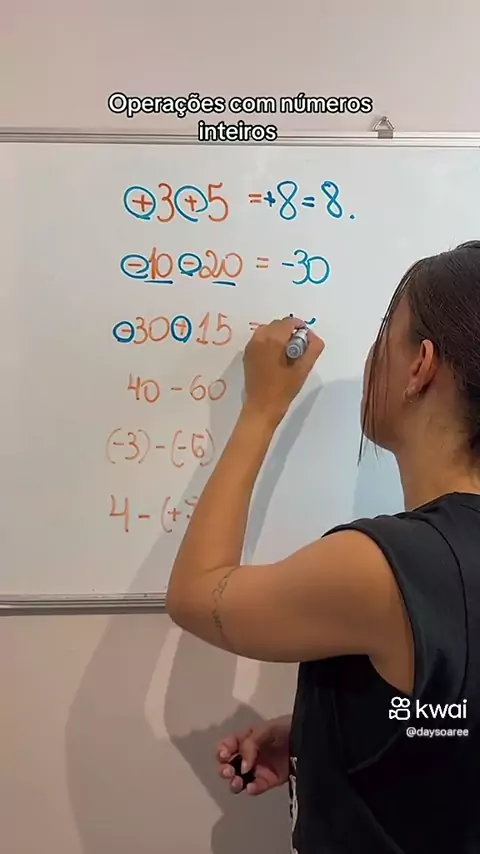 Operações com números
inteiros
+3+5 =+8=8.
-10-20 = -30
-30+15 =
40-60
(-3)-(-5)
4-(+
kwai
@daysoaree